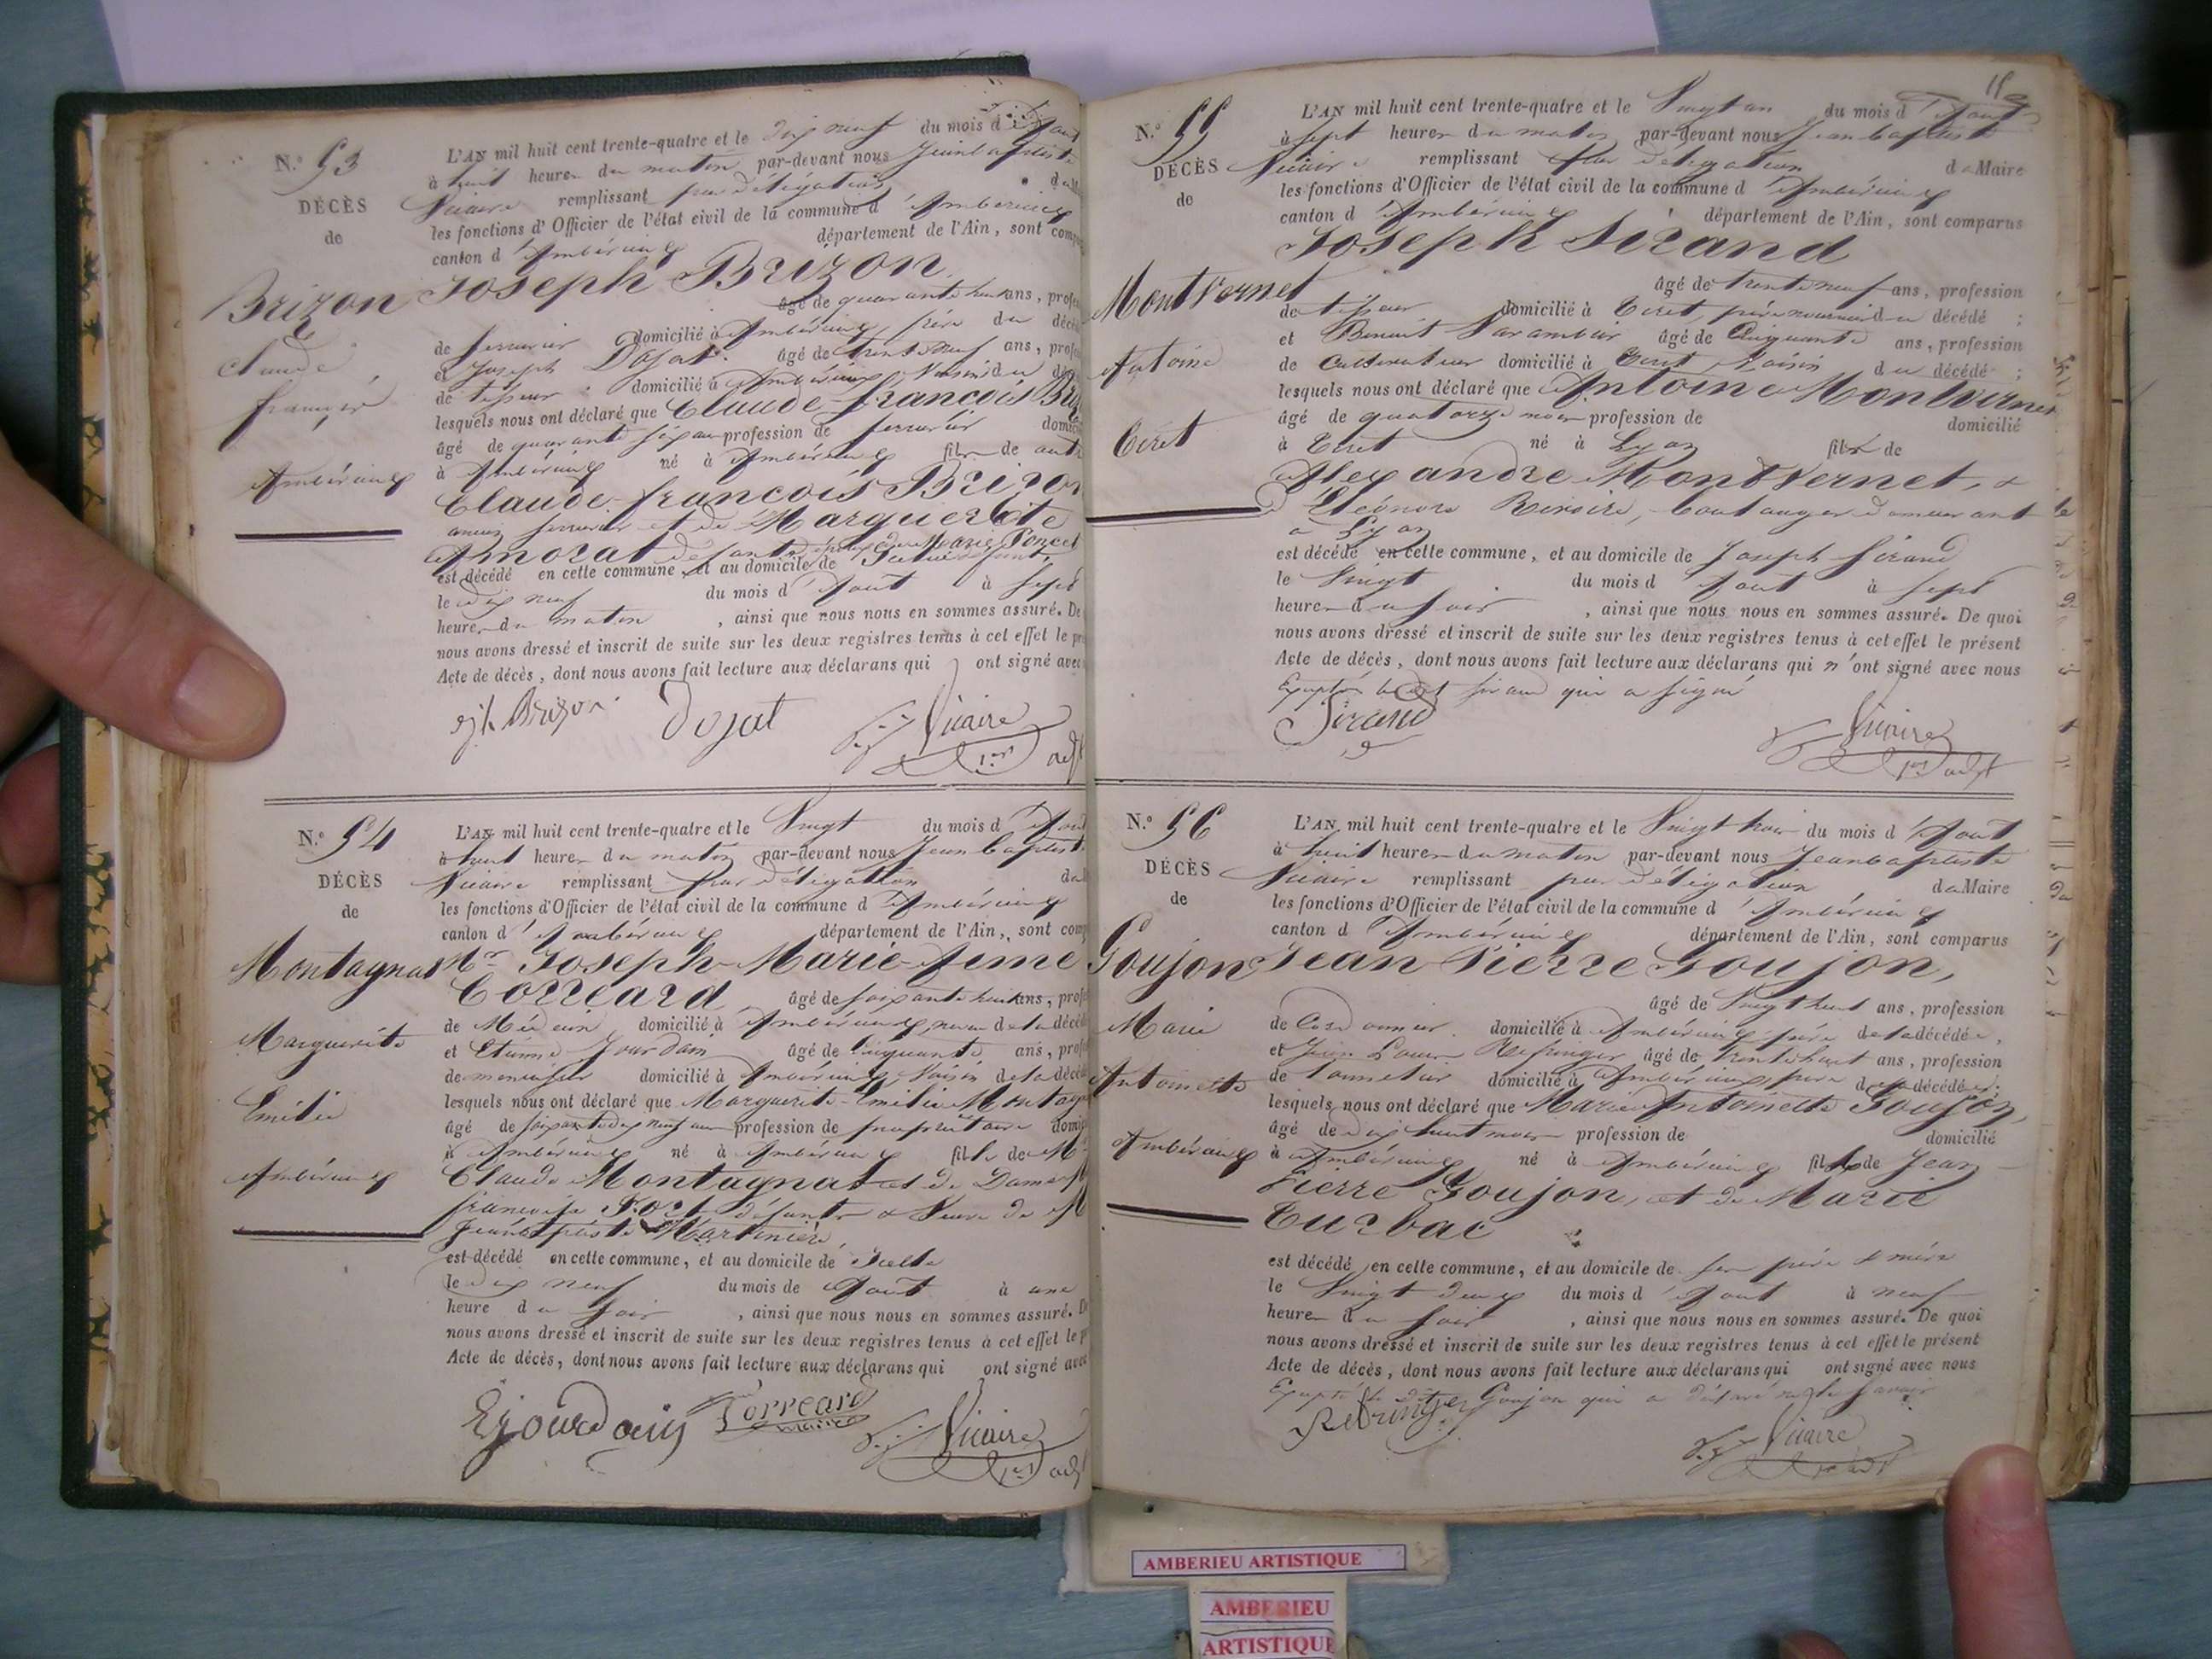 N.º 53
DÉCÈS
de
Brizon
Claude
françois
Ambérieux
L'AN mil huit cent trente-quatre et le dix neuf du mois d'Aout
à huit heures du matin par-devant nous Jeanbaptiste
Vicaire remplissant par délégation du
les fonctions d'Officier de l'état civil de la commune d'Ambérieux
canton d'Ambérieux département de l'Ain, sont comp
Joseph Brizon
âgé de quarante huit ans, profes
de serrurier domicilié à Ambérieux, frère du décédé
et Joseph Dojat âgé de trente neuf ans, profes
de tisseur domicilié à Ambérieux, Voisin du dé
lesquels nous ont déclaré que Claude-françois Briz
âgé de quarante six ans profession de serrurier domici
à Ambérieux né à Ambérieux fils de
Claude-françois Brizon
serrurier et de Marguerite
Amorat Marie Poncet
est décédé en cette commune, et au domicile de
le dix neuf du mois d'Aout à sept
heures du matin, ainsi que nous nous en sommes assuré. De
nous avons dressé et inscrit de suite sur les deux registres tenus à cet effet le pr
Acte de décès, dont nous avons fait lecture aux déclarans qui ont signé avec
Brizon Dojat Vicaire
1er adjt
N.º 54
DÉCÈS
de
Montagnat
Marguerite
Emélie
Ambérieux
L'AN mil huit cent trente-quatre et le Vingt du mois d'Aout
à huit heures du matin par-devant nous Jean baptiste
Vicaire remplissant par délégation du
les fonctions d'Officier de l'état civil de la commune d'Ambérieux
canton d'Ambérieux département de l'Ain, sont comp
Mr Joseph-Marie-Aimé
Corréard âgé de soixante huit ans, profes
de Médecin domicilié à Ambérieux neveu de la décéd
et Etienne Jourdain âgé de Cinquante ans, prof
de menuisier domicilié à Ambérieux, Voisin de la décéd
lesquels nous ont déclaré que Marguerite-Emélie Montagn
âgé de soixante dix neuf ans profession de propriétaire domici
à Ambérieux né à Ambérieux fille de Mr
Claude Montagnat et de Dame
françoise défunts & Veuve de M
Jeanbaptiste Martinière
est décédé en cette commune, et au domicile de Icelle
le dix neuf du mois de Aout à une
heure du soir, ainsi que nous nous en sommes assuré. De
nous avons dressé et inscrit de suite sur les deux registres tenus à cet effet le p
Acte de décès, dont nous avons fait lecture aux déclarans qui ont signé avec
E jourdain Corréard Vicaire
maire 1er adjt
N.º 55
DÉCÈS
de
MontVernet
Antoine
Tiret
L'AN mil huit cent trente-quatre et le Vingt un du mois d'Aout
à sept heures du matin par-devant nous Jean baptiste
Vicaire remplissant par délégation du Maire
les fonctions d'Officier de l'état civil de la commune d'Ambérieux
canton d'Ambérieux département de l'Ain, sont comparus
Joseph Sirand
âgé de trente neuf ans, profession
de tisseur domicilié à Tiret, père nourricier du décédé ;
et Benoit Varambier âgé de Cinquante ans, profession
de Cultivateur domicilié à Tiret Voisin du décédé ;
lesquels nous ont déclaré que Antoine MontVernet
âgé de quatorze mois profession de domicilié
à Tiret né à Lyon fils de
Alexandre MontVernet, &
d'Eléonore Rivoire, boulanger demeurant
à Lyon
est décédé en cette commune, et au domicile de Joseph Sirand
le Vingt du mois d'Aout à sept
heures du soir, ainsi que nous nous en sommes assuré. De quoi
nous avons dressé et inscrit de suite sur les deux registres tenus à cet effet le présent
Acte de décès, dont nous avons fait lecture aux déclarans qui n'ont signé avec nous
Excepté ledit Sirand qui a signé
Sirand Vicaire
1er adjt
N.º 56
DÉCÈS
de
Goujon
Marie
Antoinette
Ambérieux
L'AN mil huit cent trente-quatre et le Vingt trois du mois d'Aout
à huit heures du matin par-devant nous Jeanbaptiste
Vicaire remplissant par délégation du Maire
les fonctions d'Officier de l'état civil de la commune d'Ambérieux
canton d'Ambérieux département de l'Ain, sont comparus
Jean Pierre Goujon,
âgé de Vingt huit ans, profession
de Cordonnier domicilié à Ambérieux, père de la décédée,
et Jean Louis âgé de trente huit ans, profession
de tonnelier domicilié à Ambérieux, décédée ;
lesquels nous ont déclaré que Marie Antoinette Goujon,
âgé de dix huit mois profession de domicilié
à Ambérieux né à Ambérieux fille de Jean
Pierre Goujon, et de Marie
Turbac
est décédé en cette commune, et au domicile de ses père & mère
le Vingt deux du mois d'Aout à neuf
heures du soir, ainsi que nous nous en sommes assuré. De quoi
nous avons dressé et inscrit de suite sur les deux registres tenus à cet effet le présent
Acte de décès, dont nous avons fait lecture aux déclarans qui ont signé avec nous
Excepté le dit Goujon qui a déclaré ne le savoir
Vicaire
1er adjt
AMBERIEU ARTISTIQUE
AMBERIEU
ARTISTIQUE